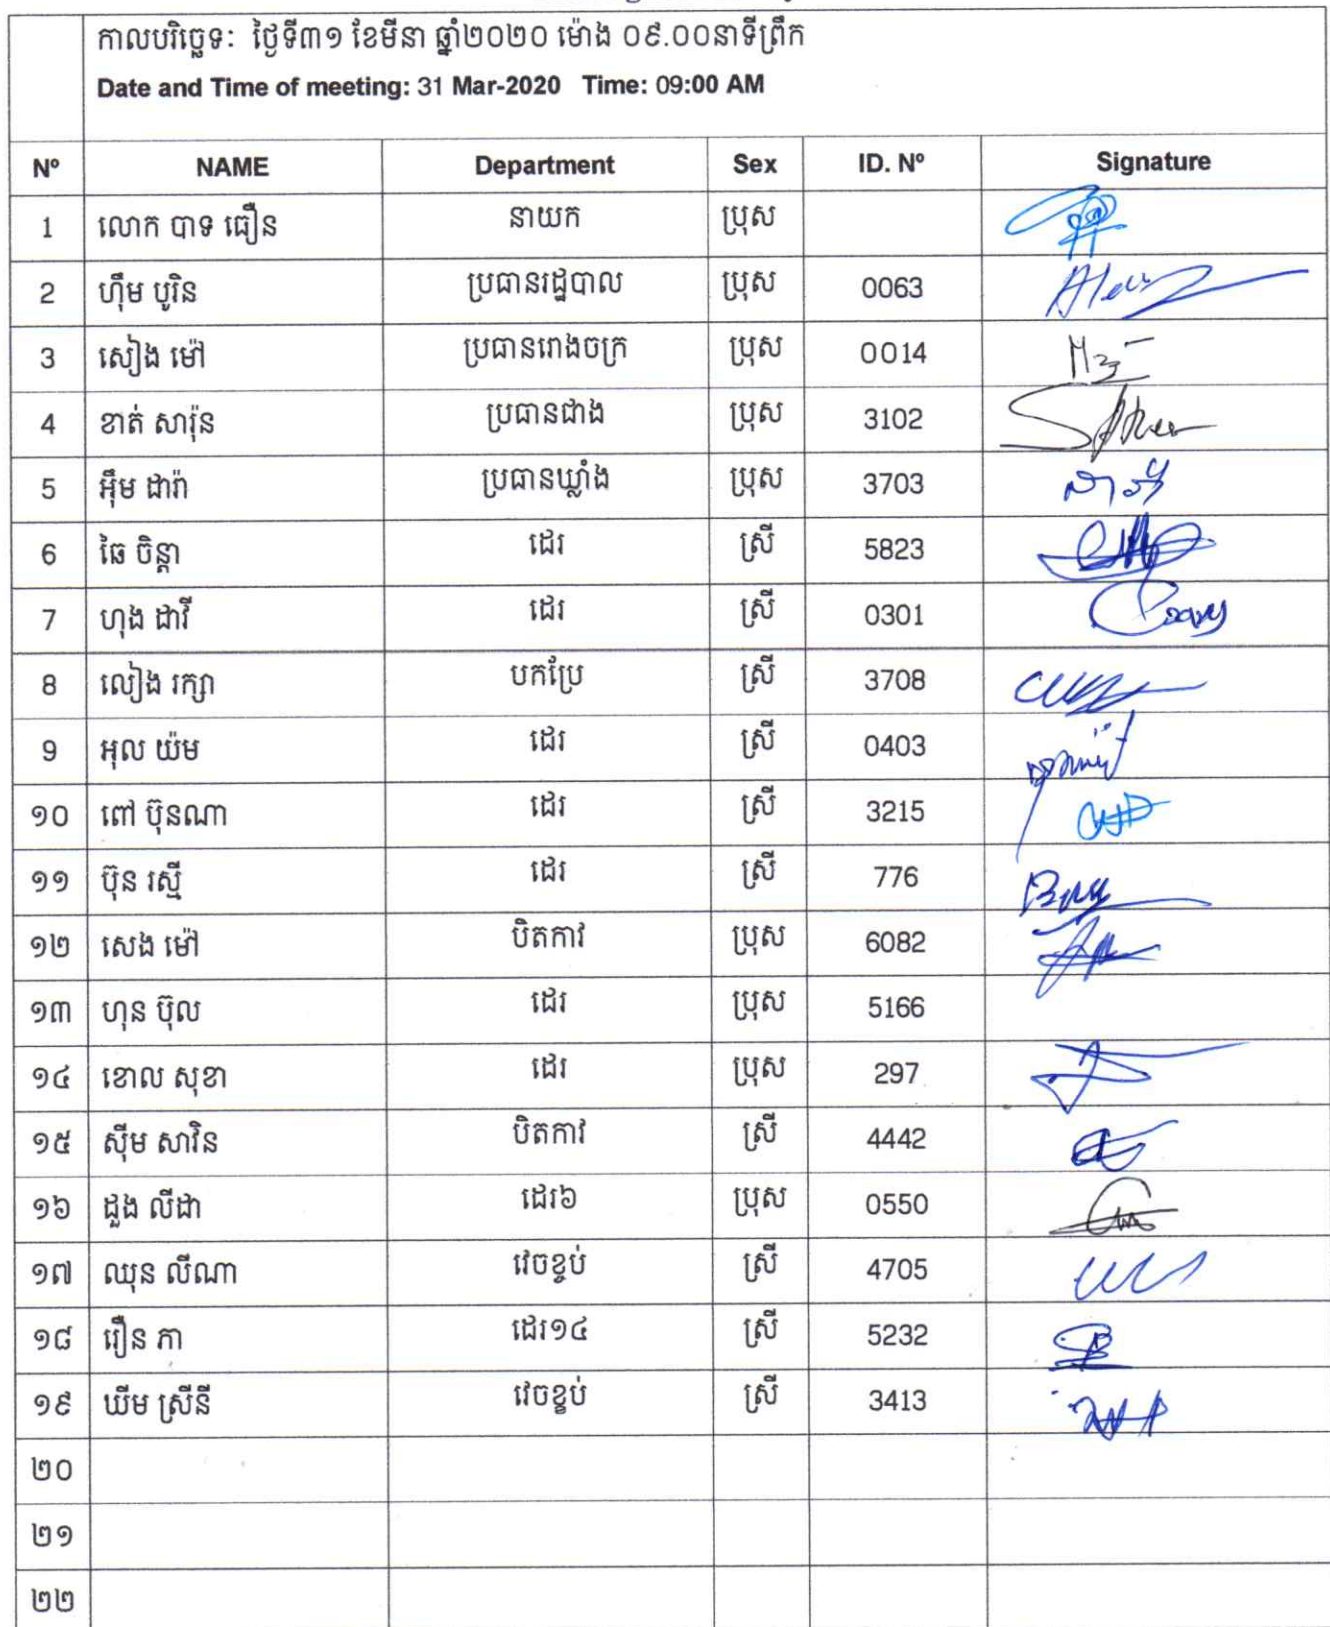 កាលបរិច្ឆេទៈ ថ្ងៃទី៣១ ខែមីនា ឆ្នាំ២០២០ ម៉ោង ០៩.០០នាទីព្រឹក
Date and Time of meeting: 31 Mar-2020 Time: 09:00 AM
Nº NAME Department Sex ID. Nº Signature
1 លោក បាទ ធឿន នាយក ប្រុស
2 ហ៊ឹម បូរិន ប្រធានរដ្ឋបាល ប្រុស 0063
3 សៀង ម៉ៅ ប្រធានរោងចក្រ ប្រុស 0014
4 ខាត់ សារ៉ុន ប្រធានជាង ប្រុស 3102
5 អ៊ឹម ដារ៉ា ប្រធានឃ្លាំង ប្រុស 3703
6 ឆៃ ចិន្តា ដេរ ស្រី 5823
7 ហុង ដាវី ដេរ ស្រី 0301
8 លៀង រក្សា បកប្រែ ស្រី 3708
9 អុល យ៉ម ដេរ ស្រី 0403
១០ ពៅ ប៊ុនណា ដេរ ស្រី 3215
១១ ប៊ុន រស្មី ដេរ ស្រី 776
១២ សេង ម៉ៅ បិតកាវ ប្រុស 6082
១៣ ហុន ប៊ុល ដេរ ប្រុស 5166
១៤ ខោល សុខា ដេរ ប្រុស 297
១៥ ស៊ីម សាវិន បិតកាវ ស្រី 4442
១៦ ដួង លីដា ដេរ៦ ប្រុស 0550
១៧ ឈុន លីណា វេចខ្ចប់ ស្រី 4705
១៨ រឿន ភា ដេរ១៤ ស្រី 5232
១៩ ឃីម ស្រីនី វេចខ្ចប់ ស្រី 3413
២០
២១
២២